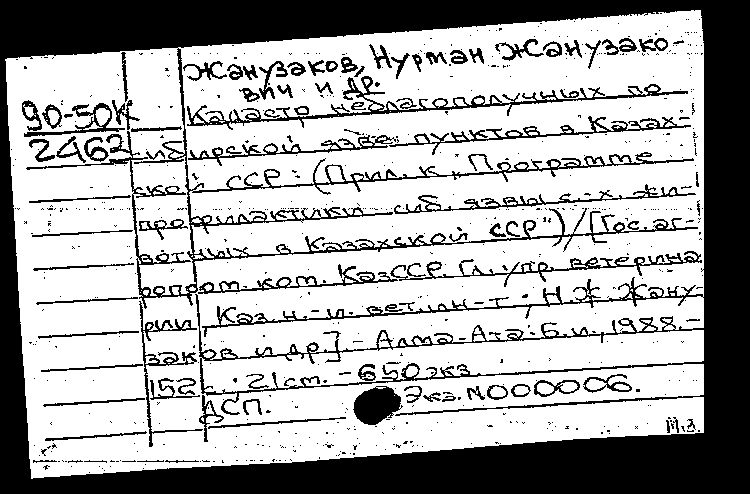 Жанузаков, Нурман Жанузако-
вич и др.
90-50К
2462
Кадастр неблагополучных по
сибирской язве пунктов в Казах-
ской ССР: (Прил. к „Программе
профилактики сиб. язвы с.-х. жи-
вотных в Казахской ССР")/[Гос. аг-
ропром. ком. КазССР. Гл. упр. ветерина
рии, Каз. н.-и. вет. ин-т; Н.Ж. Жану-
заков и др.].- Алма-Ата: Б.и., 1988.-
152 с.; 21 см. - 650 экз.
ДСП. Экз. N000006.
М.З.